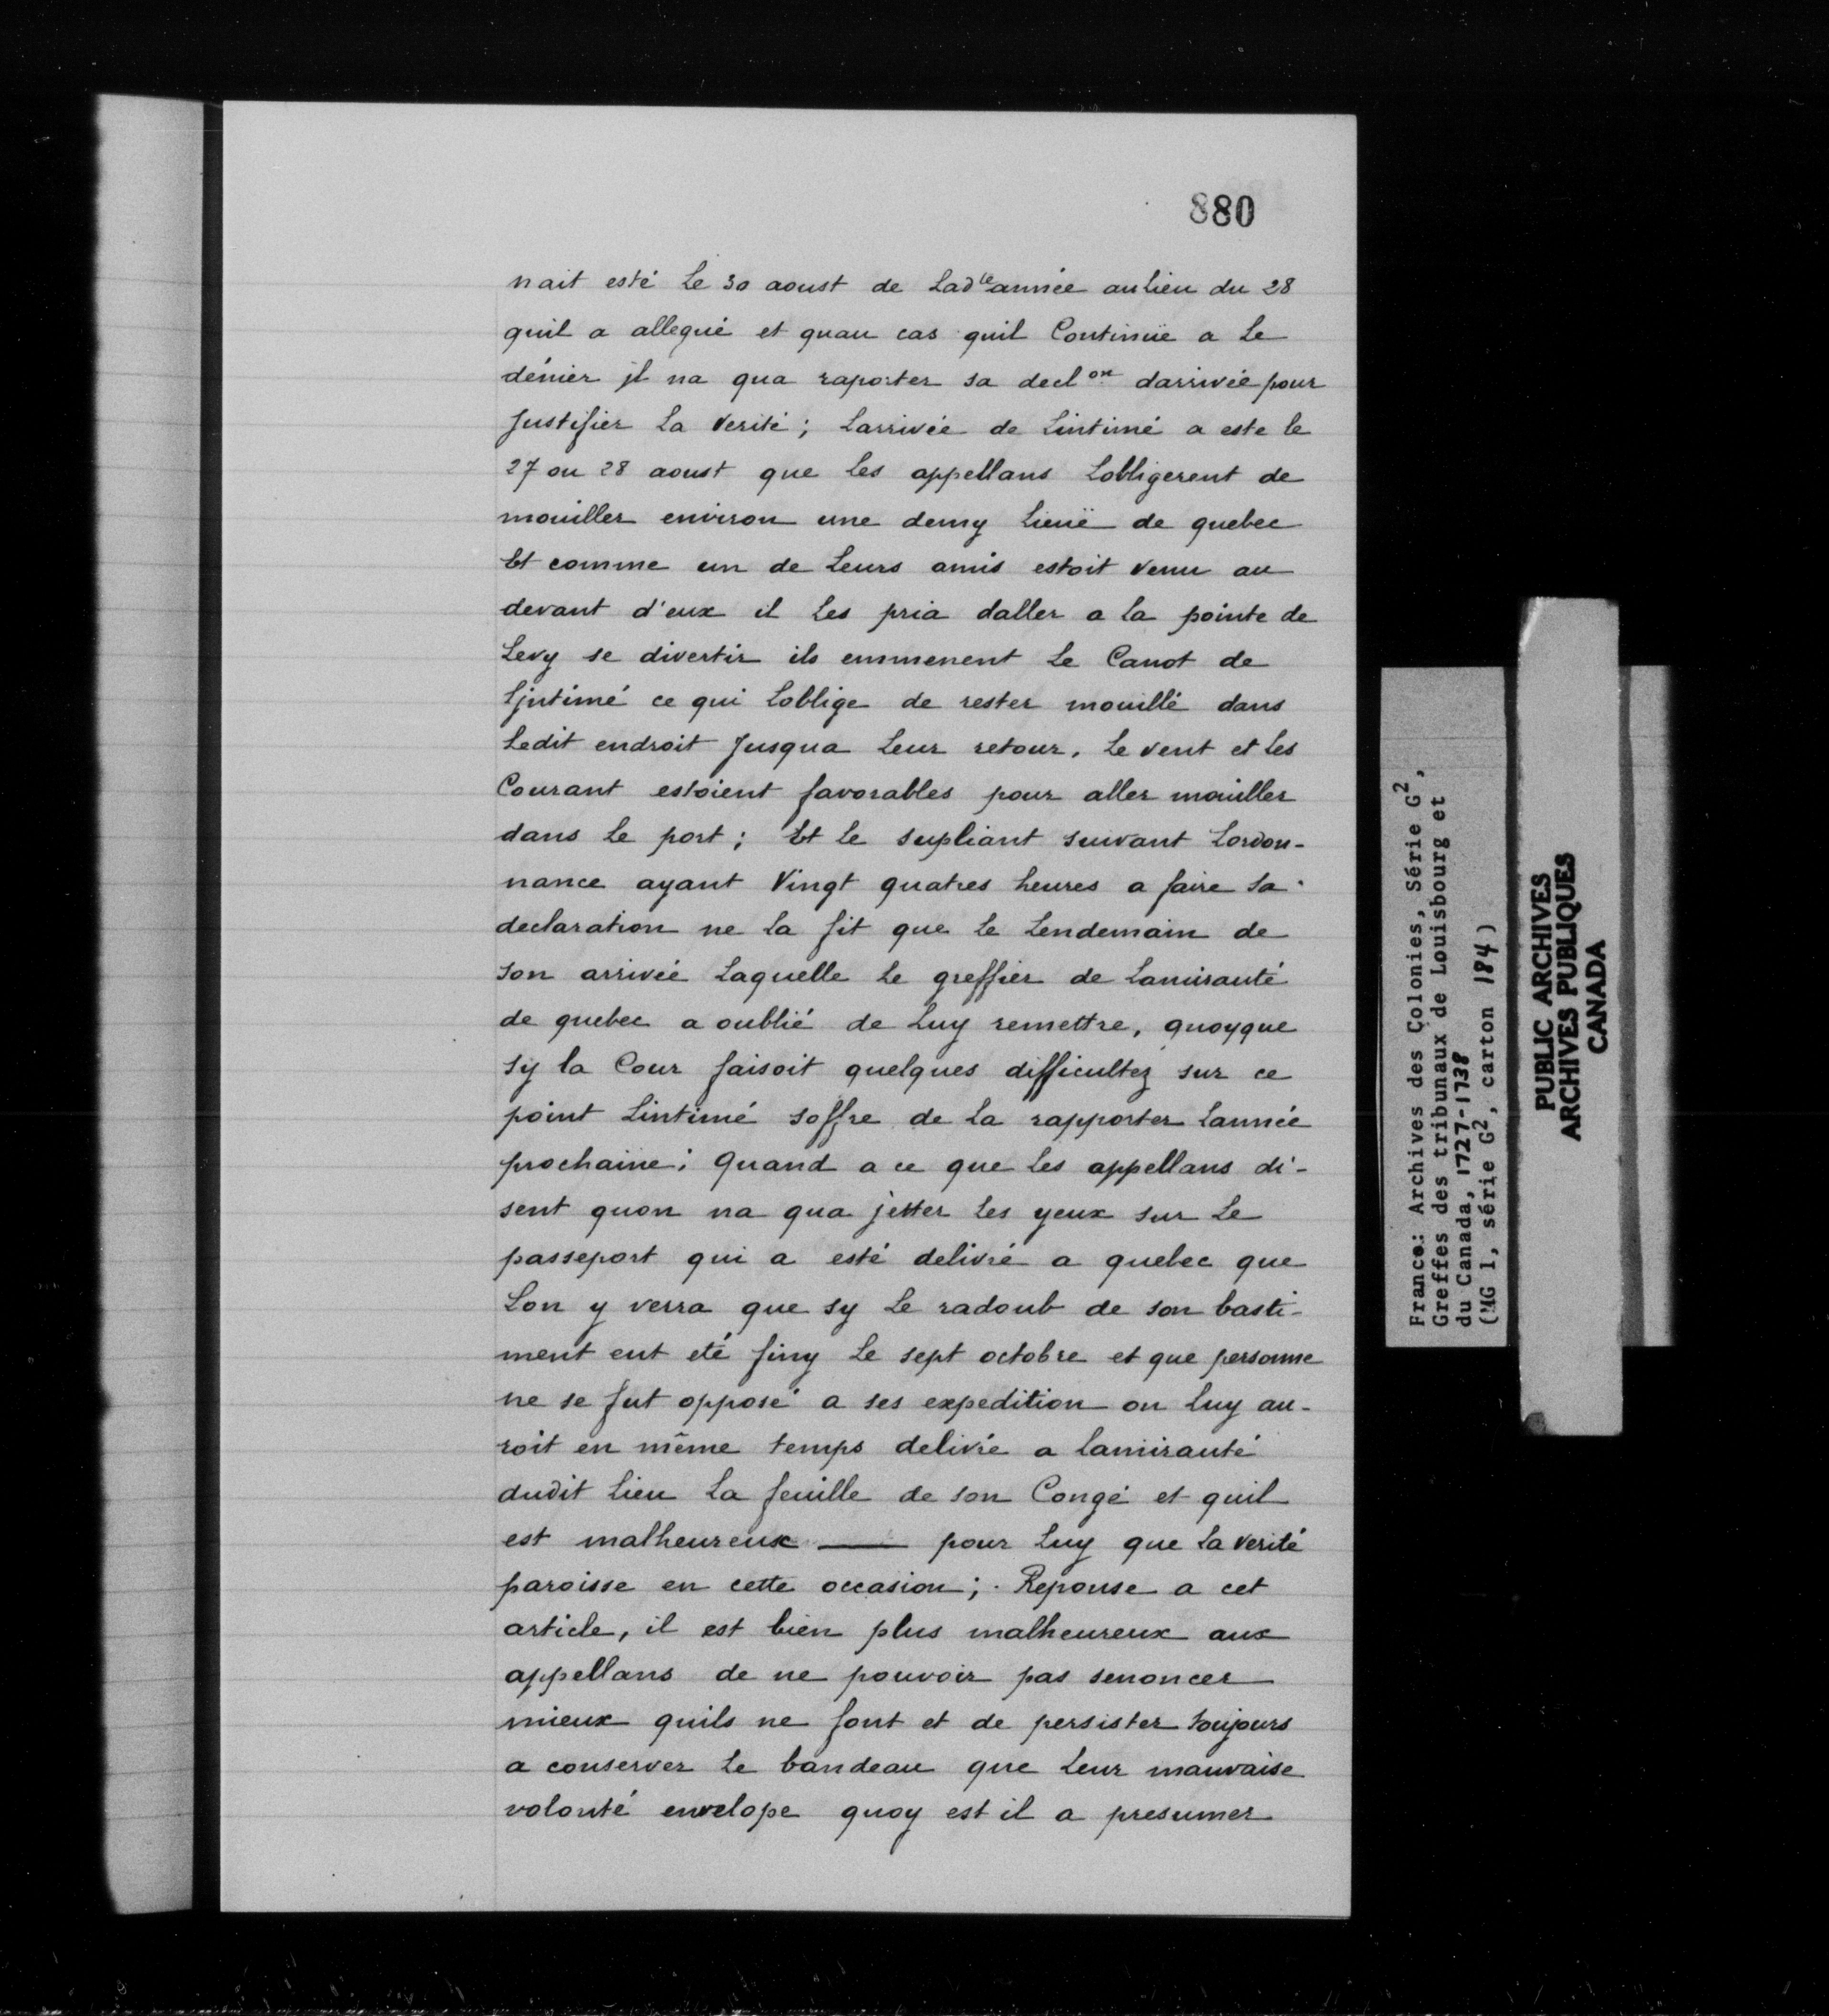 880
nait esté Le 30 aoust de Lad.te année au lieu du 28
quil a allegué et quau cas quil Continüe a Le
dénier jl na qua raporter sa decl.on darrivée pour
Justifier La verité ; Larrivée de Lintimé a este le
27 ou 28 aoust que Les appellans Lobligerent de
mouiller environ une demy Lieuë de quebec
Et comme un de Leurs amis estoit venu au
devant d'eux il Les pria daller a la pointe de
Levy se divertir ils emmenent Le Canot de
Ljntimé ce qui Loblige de rester mouillé dans
Ledit endroit Jusqua Leur retour. Le vent et Les
Courant estoient favorables pour aller mouiller
dans Le port ; Et Le supliant suivant Lordon-
nance ayant Vingt quatres heures a faire sa
declaration ne La fit que Le Lendemain de
son arrivée Laquelle Le greffier de Lamirauté
de quebec a oublié de Luy remettre, quoyque
sy la Cour faisoit quelques difficultez sur ce
point Lintimé soffre de La rapporter Lannée
prochaine ; Quand a ce que Les appellans di-
sent quon na qua jetter Les yeux sur Le
passeport qui a esté delivré a quebec que
Lon y verra que sy Le radoub de son basti-
ment eut eté finy Le sept octobre et que personne
ne se fut opposé a ses expedition on Luy au-
roit en même temps delivré a Lamirauté
dudit Lieu La feuille de son Congé et quil
est malheureux —— pour Luy que La verité
paroisse en cette occasion ; . Reponse a cet
article, il est bien plus malheureux aux
appellans de ne pouvoir pas senoncer
mieux quils ne font et de persister toujours
a conserver Le bandeau que Leur mauvaise
volonté envelope quoy est il a presumer
France: Archives des Colonies, Série G2,
Greffes des tribunaux de Louisbourg et
du Canada, 1727-1738
(MG 1, série G2, carton 184)
PUBLIC ARCHIVES
ARCHIVES PUBLIQUES
CANADA